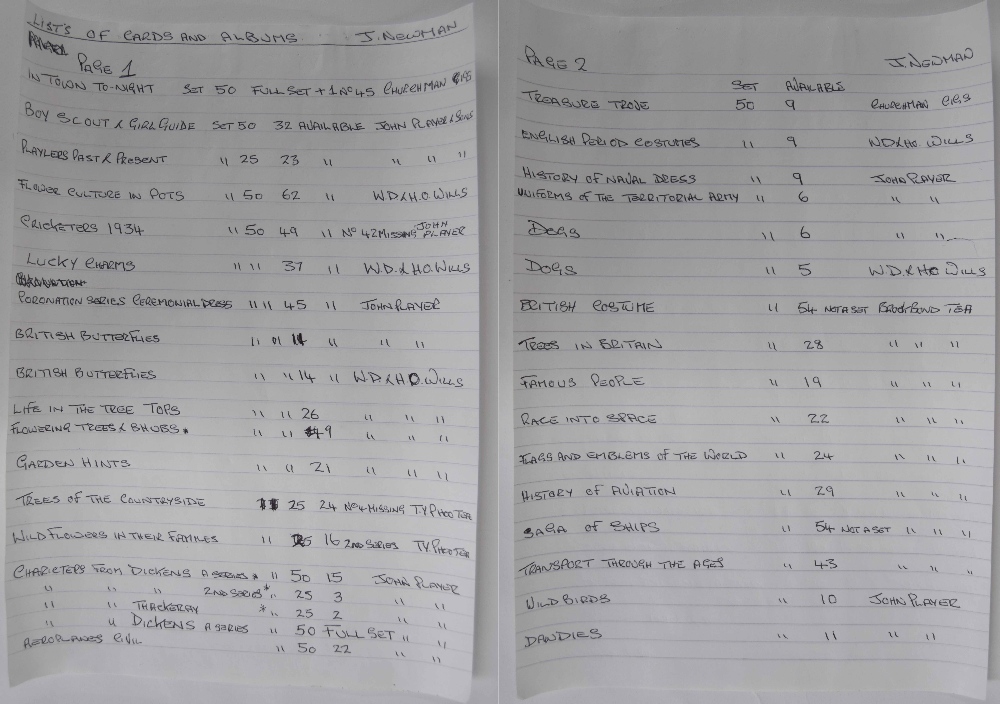 LIST'S OF CARDS AND ALBUMS. J. NEWMAN
PAGE 1
IN TOWN TO-NIGHT SET 50 FULL SET + 1 No 45 CHURCHMAN CIGS
BOY SCOUT & GIRL GUIDE SET 50 32 AVAILABLE JOHN PLAYER & SONS
PLAYLERS PAST & PRESENT " 25 23 " " " "
FLOWER CULTURE IN POTS " 50 62 " WD & H.O. WILLS
CRICKETERS 1934 " 50 49 " No 42 MISSING JOHN PLAYER
LUCKY CHARMS " " 37 " W.D. & H.O. WILLS
CORONATION SERIES CEREMONIAL DRESS " " 45 " JOHN PLAYER
BRITISH BUTTERFLIES " " 14 " " "
BRITISH BUTTERFLIES " " 14 " WD & H O. WILLS
LIFE IN THE TREE TOPS " " 26 " " "
FLOWERING TREES & SHUBS * " " 49 " " "
GARDEN HINTS " " 21 " " "
TREES OF THE COUNTRYSIDE 25 24 No 4 MISSING TYPHOO TEA
WILD FLOWERS IN THEIR FAMILES " 25 16 2ND SERIES TYPHOO TEA
CHARICTERS FROM DICKENS A SERIES * " 50 15 JOHN PLAYER
" " " 2ND SERIES * " 25 3 " "
" " THACKERAY * " 25 2 " "
" " DICKENS A SERIES " 50 FULL SET " "
AEROPLANES CIVIL " 50 22 " "
PAGE 2 J. NEWMAN
SET AVAILABLE
TREASURE TROVE 50 9 CHURCHMAN CIGS
ENGLISH PERIOD COSTUMES " 9 WD & HO. WILLS
HISTORY OF NAVAL DRESS " 9 JOHN PLAYER
UNIFORMS OF THE TERRITORIAL ARMY " 6 " "
DOGS " 6 " "
DOGS " 5 W.D. & H O WILLS
BRITISH COSTUME " 54 NOT A SET BROOK BOND TEA
TREES IN BRITAIN " 28 " " "
FAMOUS PEOPLE " 19 " " "
RACE INTO SPACE " 22 " " "
FLAGS AND EMBLEMS OF THE WORLD " 24 " " "
HISTORY OF AVIATION " 29 " " "
SAGA OF SHIPS " 54 NOT A SET " " "
TRANSPORT THROUGH THE AGES " 43 " " "
WILD BIRDS " 10 JOHN PLAYER
DANDIES " 11 " "